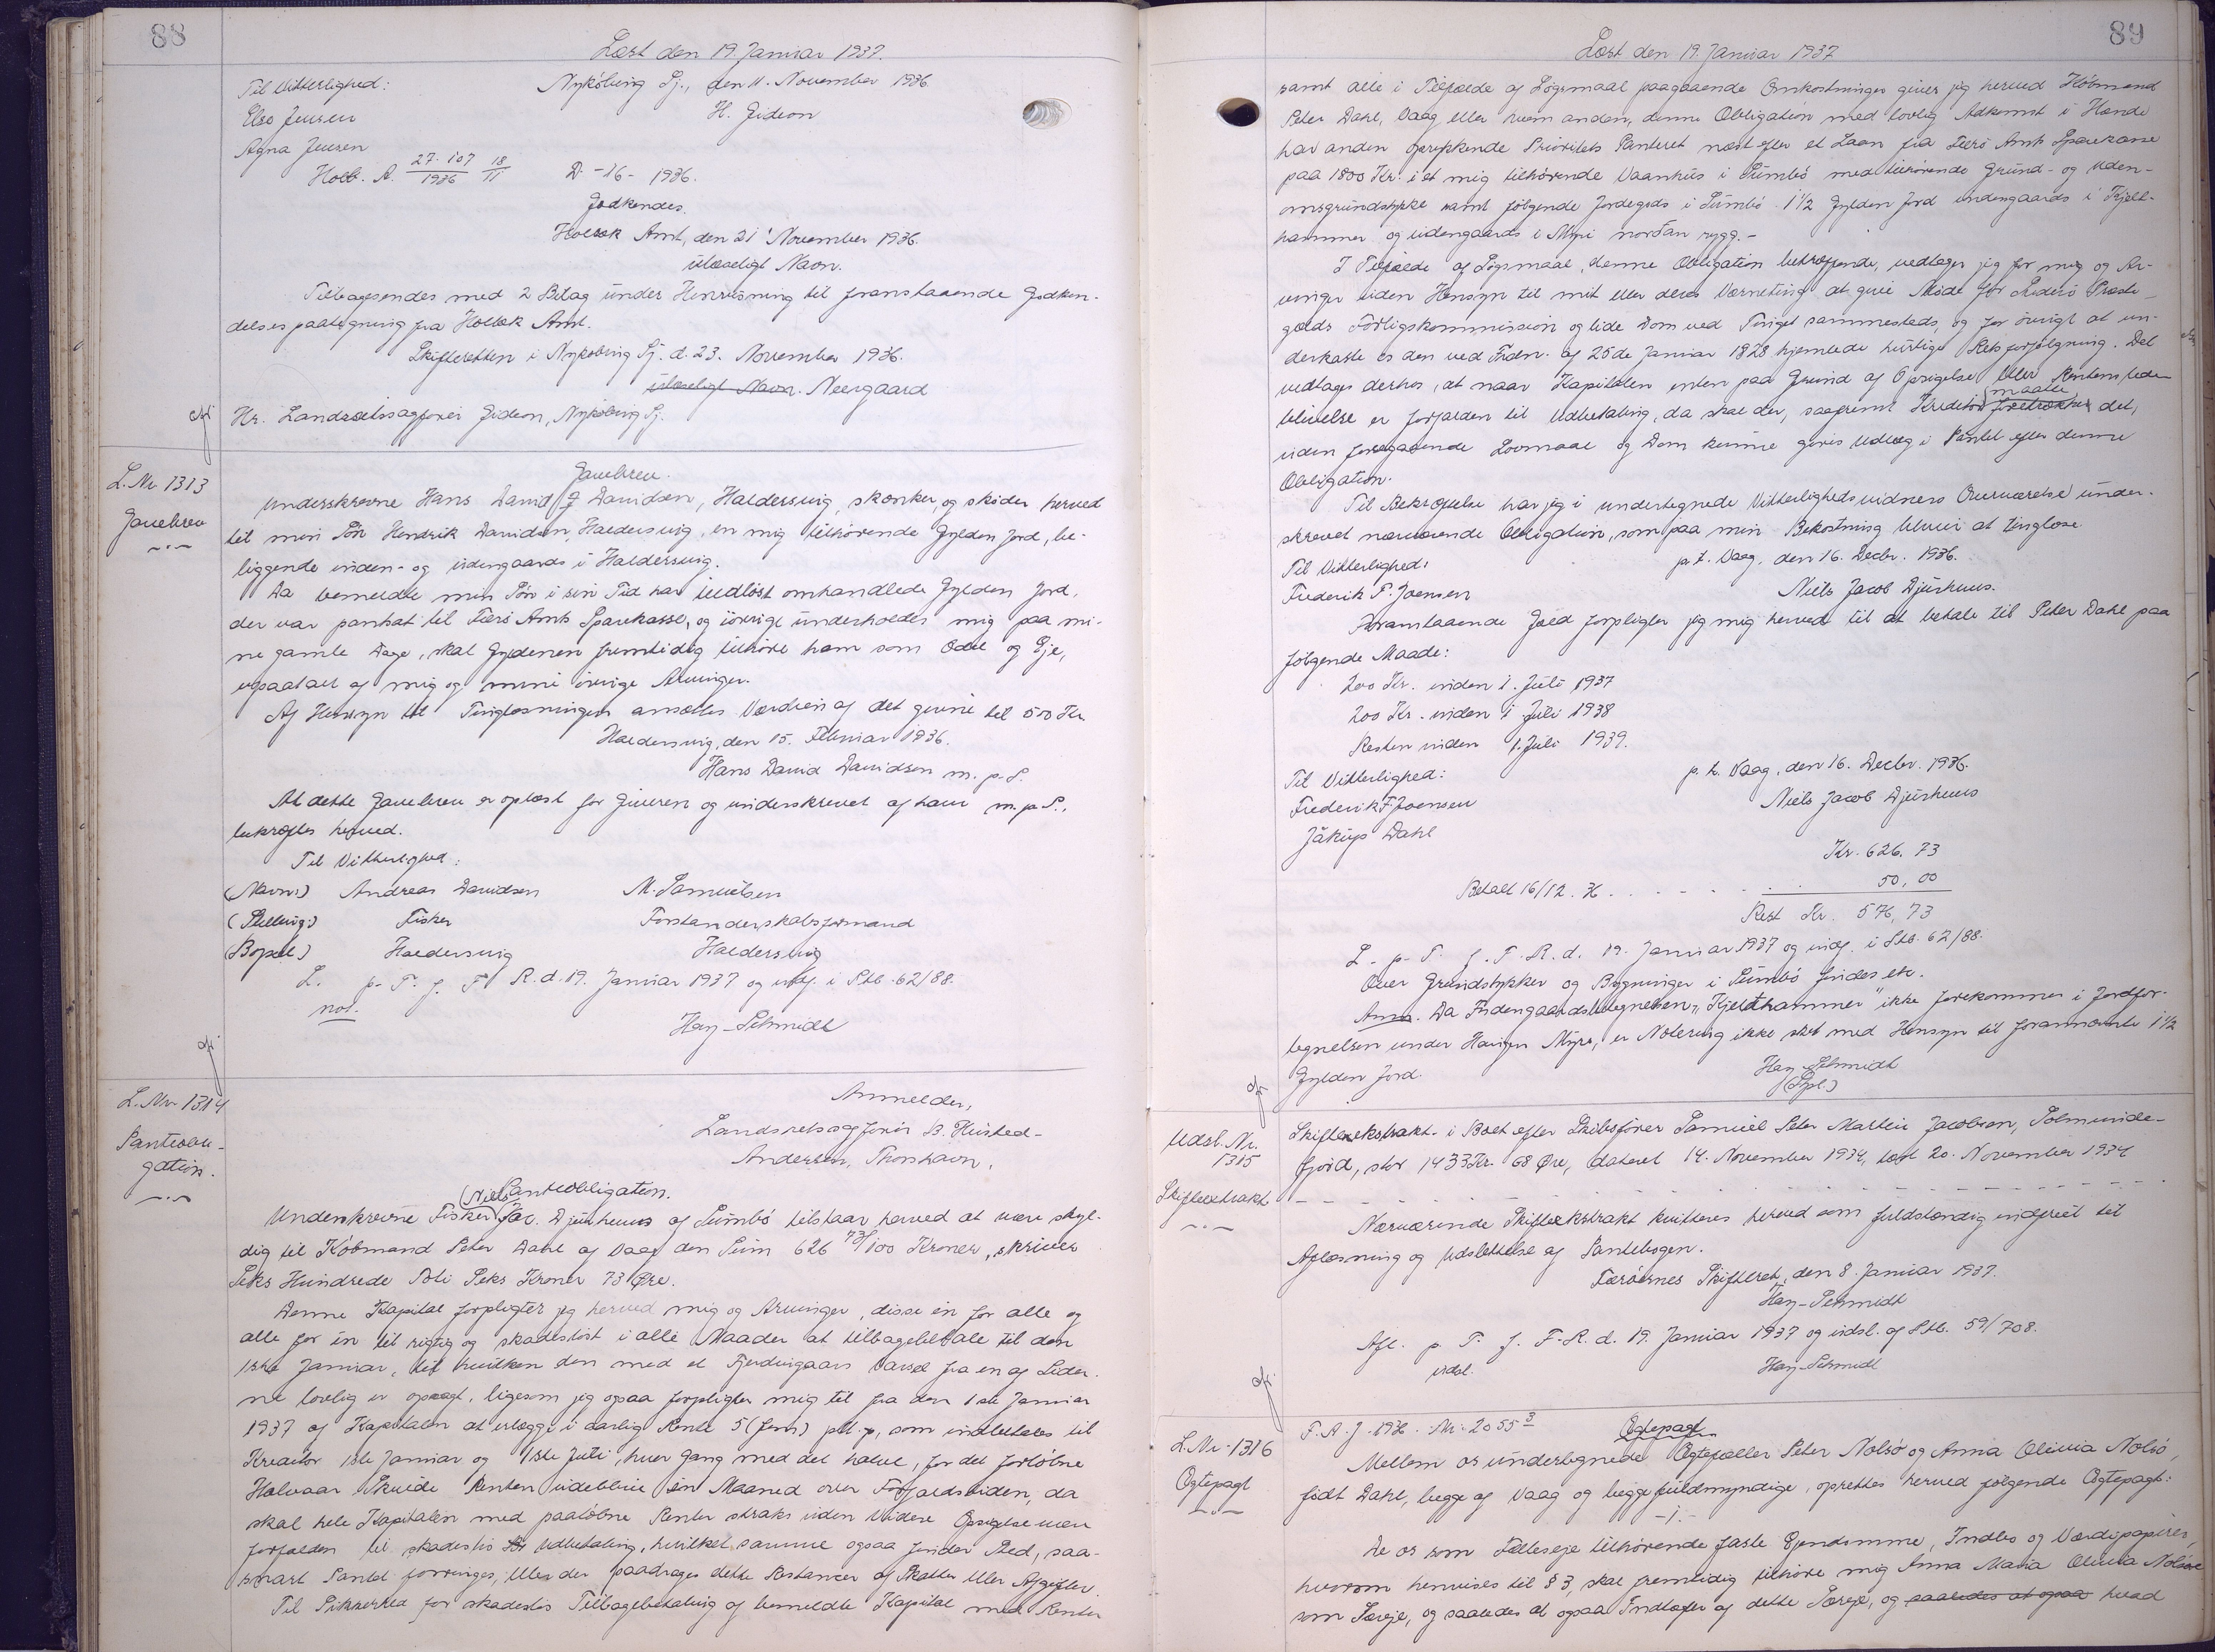 88
Læst den 19. Januar 1937.
Til Vitterlighed:
Nykøbing Sj., den 11. November 1936.
Else Jensen
H. Gideon
Agna Jensen
Holb. A. 27. 107/1936 18/11 D. -16- 1936.
Godkendes.
Holbæk Amt, den 21 November 1936.
ulæseligt Navn.
Tilbagesendes med 2 Bilag under Henvisning til foranstaaende Godken-
delsespaategning fra Holbæk Amt.
Skifteretten i Nykøbing Sj. d. 23. November 1936.
ulæseligt Navn. Neergaard
Hr. Landsretssagfører Gideon, Nykøbing Sj.
L. Nr. 1313
Gavebrev
Gavebrev.
Underskrevne Hans David J Davidsen, Haldersvig, skænker og skøder herved
til min Søn Hendrik Davidsen, Haldersvig, en mig tilhørende Gylden Jord, be-
liggende inden- og udengaards i Haldersvig.
Da bemeldte min Søn i sin Tid har indløst omhandlede Gylden Jord,
der var pantsat til Færø Amts Sparekasse, og iøvrigt underholder mig paa mi-
ne gamle Dage, skal Gyldenen fremtidig tilhøre ham som Odel og Eje,
upaatalt af mig og mine øvrige Arvinger.
Af Hensyn til Tinglæsningen ansættes Værdien af det givne til 500 Kr.
Haldersvig, den 15. Februar 1936.
Hans David Davidsen m. p. S.
At dette Gavebrev er oplæst for Giveren og underskrevet af ham m. p. S.,
bekræftes herved.
Til Vitterlighed:
(Navn:) Andreas Davidsen M. Samuelsen
(Stilling:) Fisker Forstanderskabsformand
(Bopæl) Haldersvig Haldersvig
L. p. T. f. F. R. d. 19. Januar 1937 og indf. i Stb. 62/88.
not.
Hay-Schmidt
L. Nr. 1314
Panteobli-
gation.
Anmelder,
Landsretssagfører B. Husted-
Andersen, Thorshavn.
Panteobligation.
Underskrevne Fisker (Niels) Jac. Djurhuus af Sumbø tilstaar herved at være skyl-
dig til Købmand Peter Dahl af Vaag den Sum 626 73/100 Kroner, skriver
Seks Hundrede Seks Kroner 73 Øre.
Denne Kapital forpligter jeg herved mig og Arvinger, disse én for alle og
alle for én til rigtig og skadesløst i alle Maader at tilbagebetale til den
1ste Januar, til hvilken den med et Fjerdingaars Varsel fra en af Sider-
ne lovlig er opsagt, ligesom jeg ogsaa forpligter mig til fra den 1ste Januar
1937 af Kapitalen at erlægge i aarlig Rente 5 (fem) pct. p., som indbetales til
Kreditor 1ste Januar og 1ste Juli, hver Gang med det halve, for det forløbne
Halvaar. Skulde Renten udeblive én Maaned over Forfaldstiden, da
skal hele Kapitalen med paaløbne Renter straks uden videre Opsigelse være
forfalden til skadesløs Udbetaling, hvilket samme ogsaa finder Sted, saa-
snart Pantet forringes, eller der paadrages dette Restancer af Skatter eller Afgifter.
Til Sikkerhed for skadesløs Tilbagebetaling af bemeldte Kapital med Renter
89
Læst den 19. Januar 1937
samt alle i Tilfælde af Søgsmaal paagaaende Omkostninger giver jeg herved Købmand
Peter Dahl, Vaag eller hvem anden, denne Obligation med lovlig Adkomst i Hænde
har anden oprykkende Prioritets Panteret næst efter et Laan fra Færø Amts Sparekasse
paa 1800 Kr. i et mig tilhørende Vaanhus i Sumbø med tilhørende Grund- og Uden-
omsgrundstykke samt følgende Jordegods i Sumbø 1 1/2 Gylden Jord indengaards i Kjelt-
hammer og udengaards i Myri norðan rygg. -
I Tilfælde af Søgsmaal, denne Obligation betræffende, vedtager jeg for mig og Ar-
vinger uden Hensyn til mit eller deres Værneting at give Møde for Suderø Præste-
gælds Forligskommission og lide Dom ved Tinget sammesteds, og for øvrigt at un-
derkaste os den ved Frdn. af 25de Januar 1828 hjemlede hurtige Retsforfølgning. Det
vedtages derhos, at naar Kapitalen enten paa Grund af Opsigelse eller Rentens Ude-
blivelse er forfalden til Udbetaling, da skal der, saafremt Kreditor maatte foretrækker det,
uden foregaaende Lovmaal og Dom kunne gøres Udlæg i Pantet efter denne
Obligation.
Til Bekræftelse har jeg i undertegnede Vitterlighedsvidners Overværelse under-
skrevet nærværende Obligation, som paa min Bekostning bliver at tinglæse
Til Vitterlighed:
p. t. Vaag, den 16. Decbr. 1936.
Frederik F. Joensen
Niels Jacob Djurhuus.
Foranstaaende Gæld forpligter jeg mig herved til at betale til Peter Dahl paa
følgende Maade:
200 Kr. inden 1. Juli 1937
200 Kr. inden 1 Juli 1938
Resten inden 1. Juli 1939.
Til Vitterlighed:
p. t. Vaag, den 16. Decbr. 1936.
Frederik F Joensen
Niels Jacob Djurhuus
Jákup Dahl
Kr. 626, 73
Betalt 16/12. 36 . . . . . 50, 00
Rest Kr. 576, 73
L. p. T. f. F. R. d. 19. Januar 1937 og indf. i Stb. 62/88.
Over Grundstykker og Bygninger i Sumbø findes etc.
Anm. Da Indengaardsbetegnelsen "Kjelthammer" ikke forekommer i Jordfor-
tegnelsen under Haugen Myre, er Notering ikke sket med Hensyn til forannævnte 1 1/2
Gylden Jord.
Hay-Schmidt
Udsl. Nr.
1315
Skifteextrakt.
Skifteekstrakt i Boet efter Skibsfører Samuel Peter Martin Jacobsen, Solmunde-
fjord, stor 1433 Kr. 68 Øre, dateret 14. November 1934, læst 20. November 1934
Nærværende Skifteekstrakt kvitteres herved som fuldstændig indfriet til
Aflæsning og Udslettelse af Pantebogen.
Færøernes Skifteret, den 8. Januar 1937.
Hay-Schmidt
Afl. p. T. f. F. R. d. 19. Januar 1937 og udsl. af Stb. 59/708.
udsl.
Hay-Schmidt
L. Nr. 1316
Ægtepagt
F. A. J. 1936. Nr. 2055 3
Ægtepagt
Mellem os undertegnede Ægtefæller Peter Nolsø og Anna Olivia Nolsø,
født Dahl, begge af Vaag og begge fuldmyndige, oprettes herved følgende Ægtepagt:
-1.-
De os som Fælleseje tilhørende faste Ejendomme, Indbo og Værdipapirer,
hvorom henvises til § 3, skal fremtidig tilhøre mig Anna Maria Olivia Nolsøe
som Særeje, og saaledes at ogsaa Indtægter af dette Særeje, og saaledes at ogsaa hvad